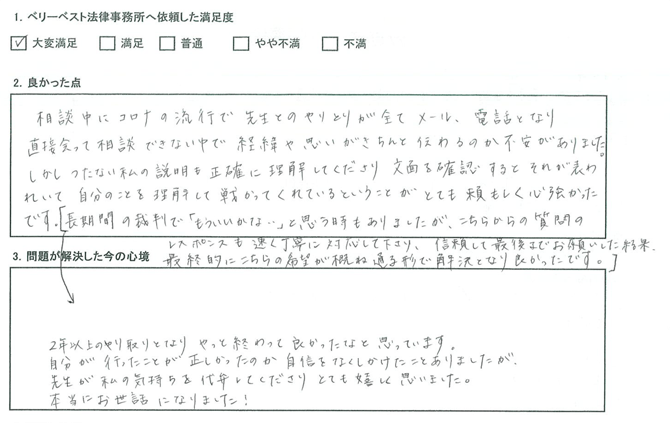 1. ベリーベスト法律事務所へ依頼した満足度
☑ 大変満足 □ 満足 □ 普通 □ やや不満 □ 不満
2. 良かった点
相談中にコロナの流行で先生とのやりとりが全てメール、電話となり
直接会って相談できない中で経緯や思いがきちんと伝わるのか不安がありました。
しかしつたない私の説明も正確に理解してくださり文面を確認するとそれが表わ
れいて自分のことを理解して戦かってくれているということがとても頼もしく心強かった
です。[長期間の裁判で「もういいかな…」と思う時もありましたが、こちらからの質問の
レスポンスも速く丁寧に対応して下さり、信頼して最後までお願いした結果、
3. 問題が解決した今の心境
最終的にこちらの希望が概ね通る形で解決となり良かったです。]
2年以上のやり取りとなりやっと終わって良かったなと思っています。
自分が行ったことが正しかったのか自信をなくしかけたことありましたが、
先生が私の気持ちを代弁してくださりとても嬉しく思いました。
本当にお世話になりました!